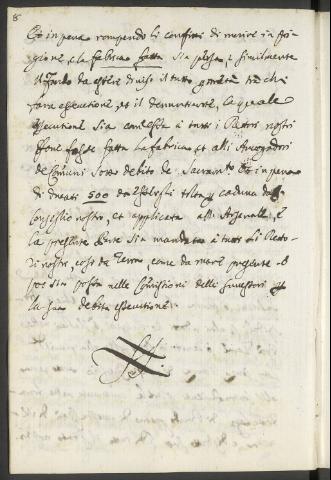 8
Et in pena rompendo li confini di morir in pri-
gione, e la fabrica fatta sia persa, e similmente
il fondo da esser diviso il tutto trà chi
farà essecutione, et il denuntiante, la quale
essecutione sia commessa à tutti i Rettori nostri
fosse fatta la fabrica, et alli Avogadori
de Comun sotto debito de Sacramto Et in pena
di ducati 500 da esserli tolta, caduna dal
Conseglio nostro, et applicata all' Arsenale, E
la presente Parte sia mandata à tutti li Retto-
ri nostri, così da Terra, come da mare presente et
poi sia posta nelle Commissioni delli successori
la sua debita essecutione.